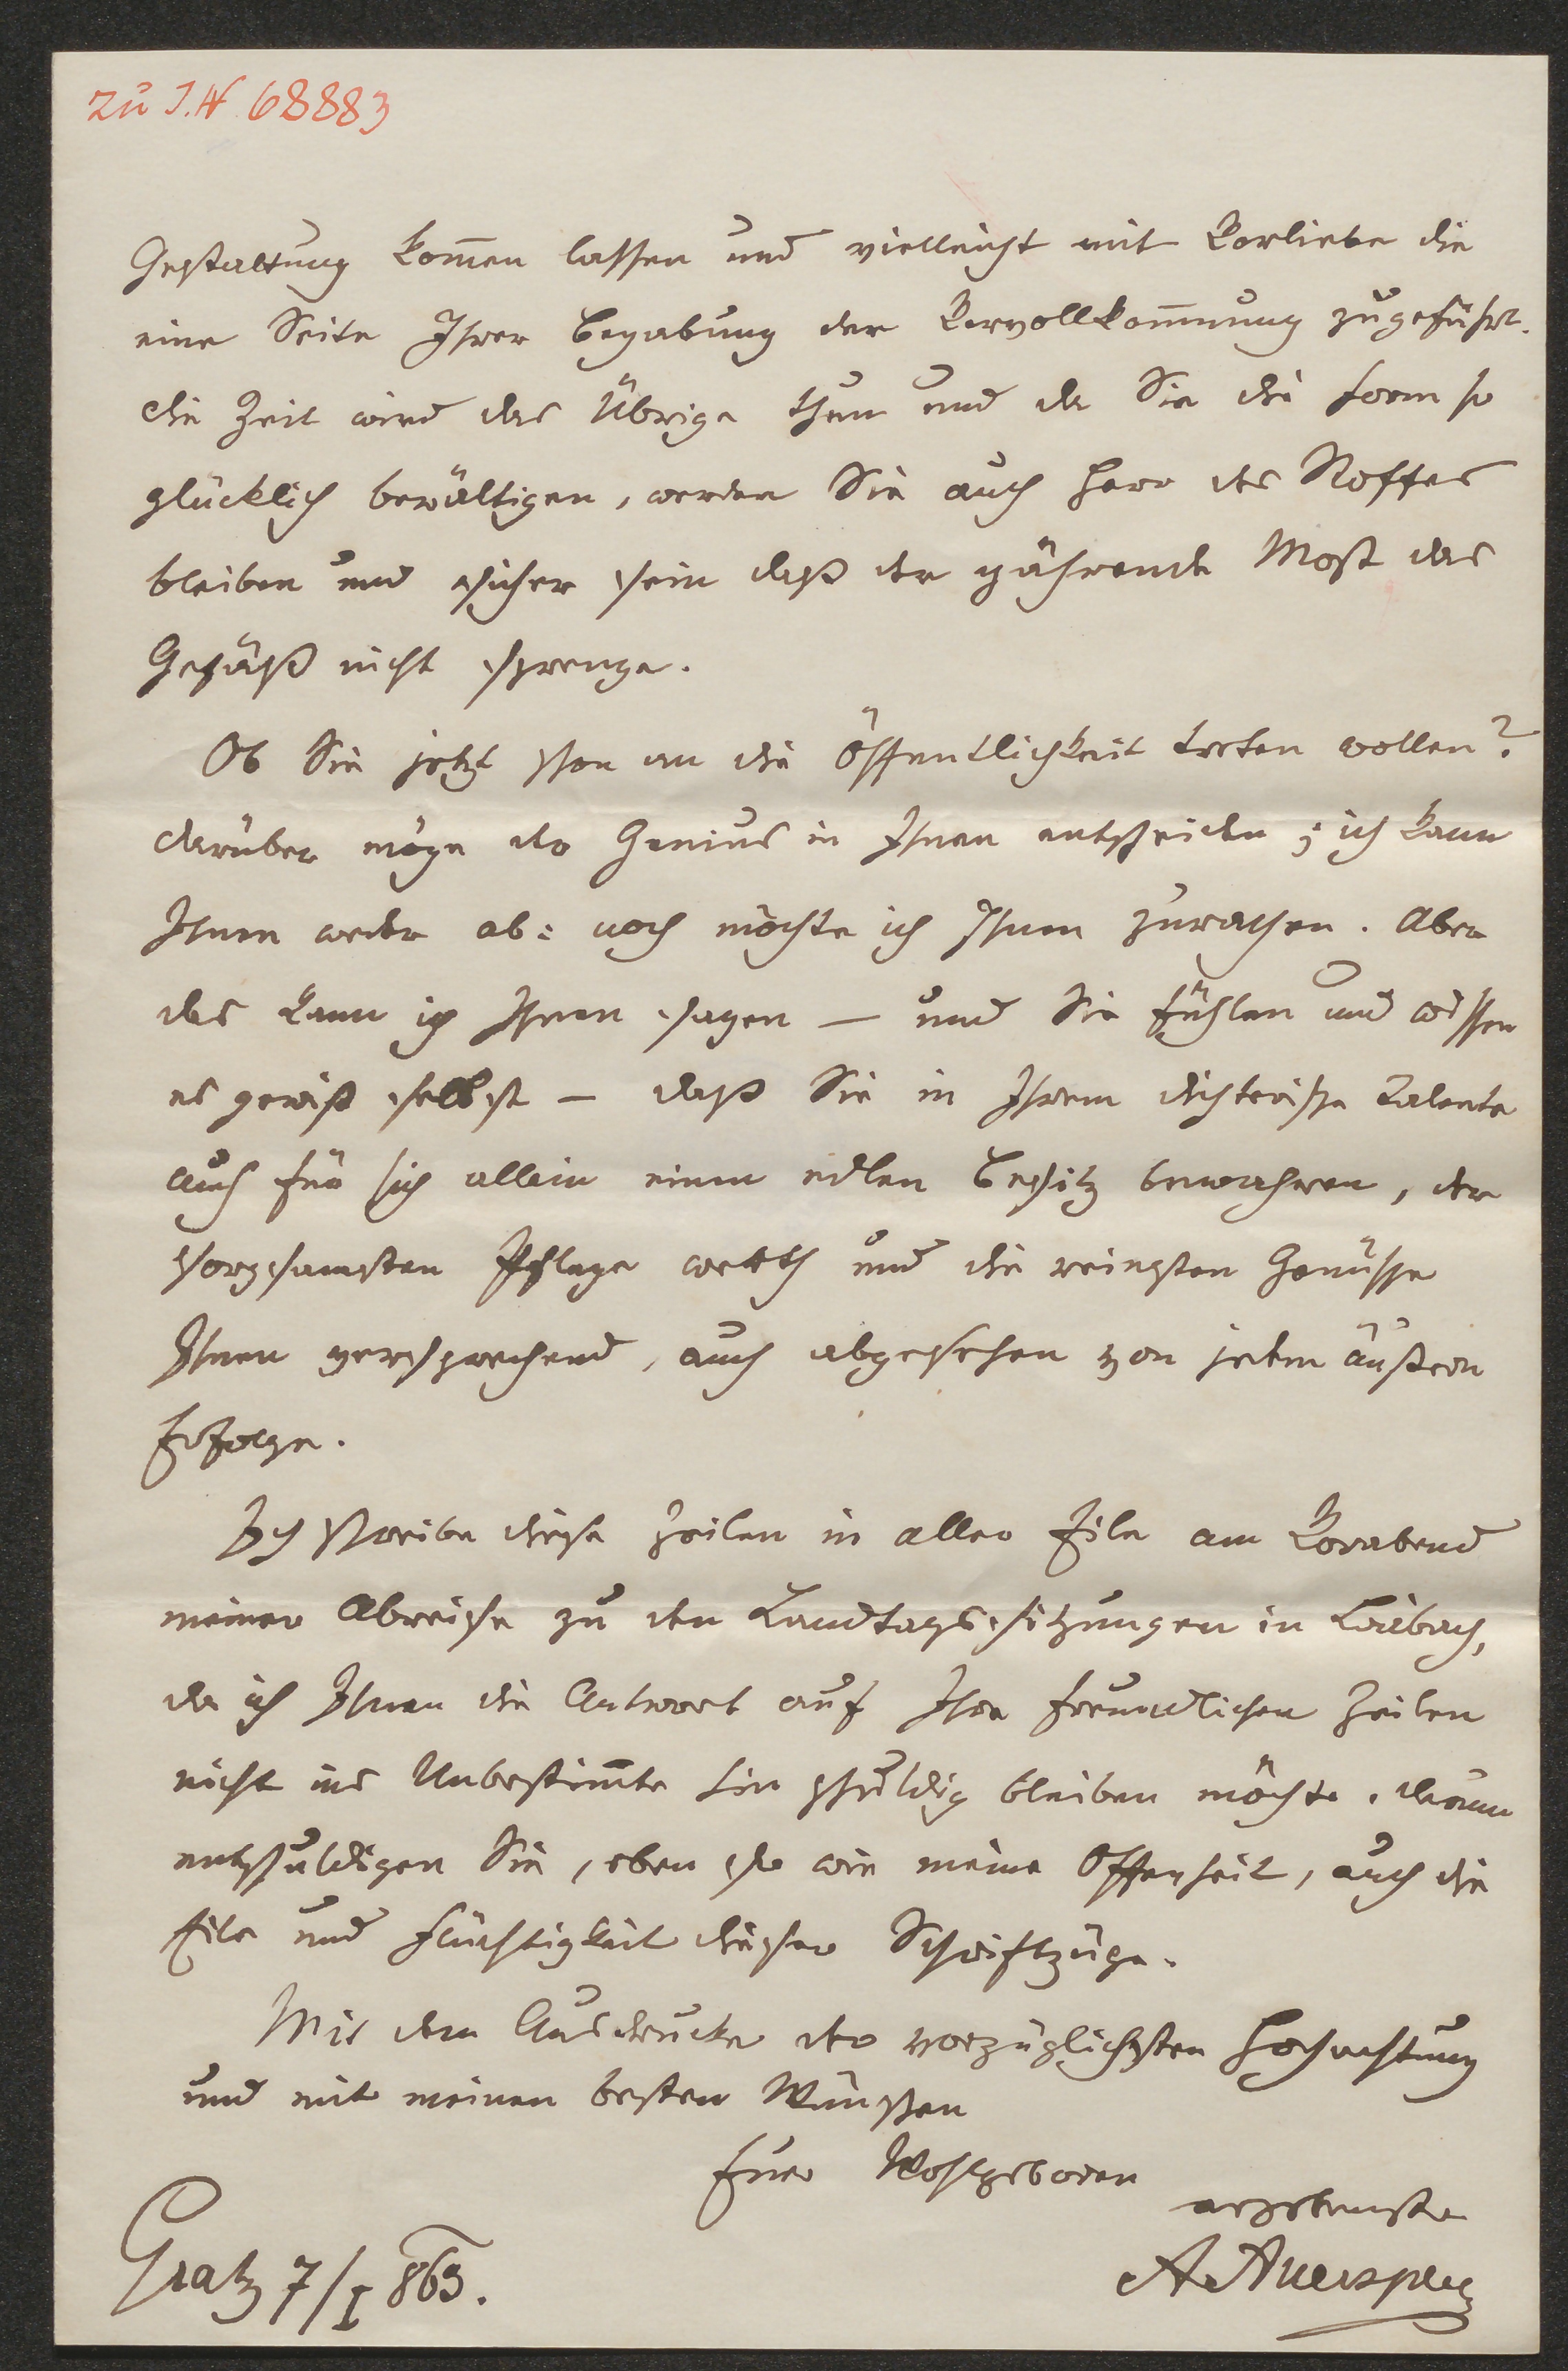 zu I.N 68883
Gestaltung kom̅en lassen und vielleicht mit Vorliebe die
eine Seite Ihrer Begabung der Vervollkom̅nung zugeführt.
Die Zeit wird das Übrige thun und da Sie die Form so
glücklich bewältigen, werden Sie auch Herr des Stoffes
bleiben und sicher sein daß der gährende Most das
Gefäß nicht sprenge.
Ob Sie jetzt schon an die Öffentlichkeit treten wollen?
darüber möge der Genius in Ihnen entscheiden; ich kann
Ihnen weder ab= noch möchte ich Ihnen zurathen. Aber
das kann ich Ihnen sagen — und Sie fühlen und wissen
es gewiß selbst — daß Sie in Ihrem dichterischen Talente
auch für sich allein einen edlen Besitz bewahren, der
sorgsamsten Pflege werth und die reinsten Genüsse
Ihnen versprechend, auch abgesehen von jedem äußern
Erfolge.
Ich schreibe diese Zeilen in aller Eile am Vorabend
meiner Abreise zu den Landtagssitzungen in Laibach,
da ich Ihnen die Antwort auf Ihre freundlichen Zeilen
nicht ins Unbestim̅te hin schuldig bleiben möchte. Darum
entschuldigen Sie, eben so wie meine Offenheit, auch die
Eile und Flüchtigkeit dieser Schriftzüge.
Mit dem Ausdrucke der vorzüglichsten Hochachtung
und mit meinen besten Wünschen
Euer Wohlgeboren
ergebenster
A. Auersperg
Gratz 7/I 863.